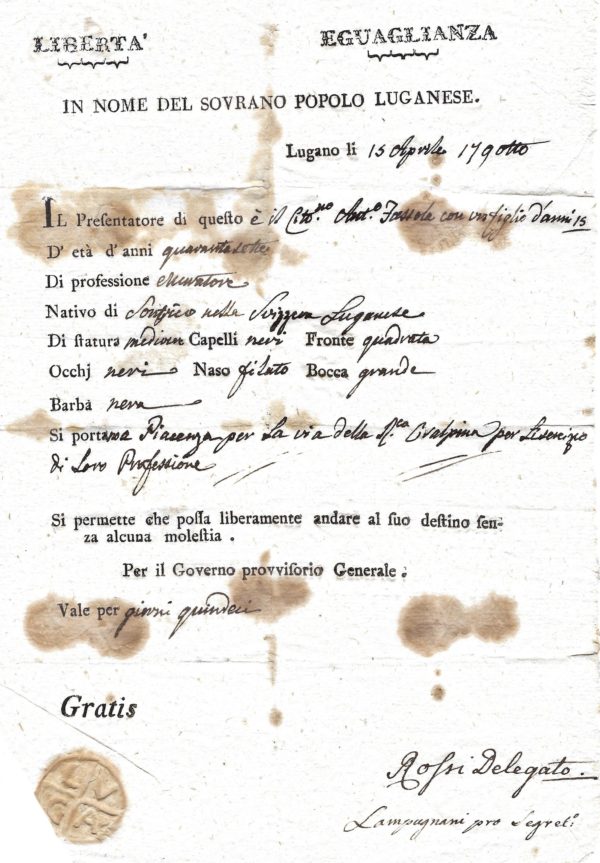 LIBERTA' EGUAGLIANZA
IN NOME DEL SOVRANO POPOLO LUGANESE.
Lugano lì 15 Aprile 179otto
IL Presentatore di questo è il Citt.no Ant.o Fassola con un figlio d'anni 15
D' età d' anni quarantasette
Di professione
Nativo di Sonvico nella Svizzera Luganese
Di statura Capelli neri Fronte quadrata
Occhj neri Naso filato Bocca grande
Barba nera
Si porta a Piacenza per La via della R.ca Cisalpina per
di Loro Professione
Si permette che possa liberamente andare al suo destino sen-
za alcuna molestia.
Per il Governo provvisorio Generale.
Vale per giorni quindeci
Gratis
Rossi Delegato.
Lampugnani pro Segret.o